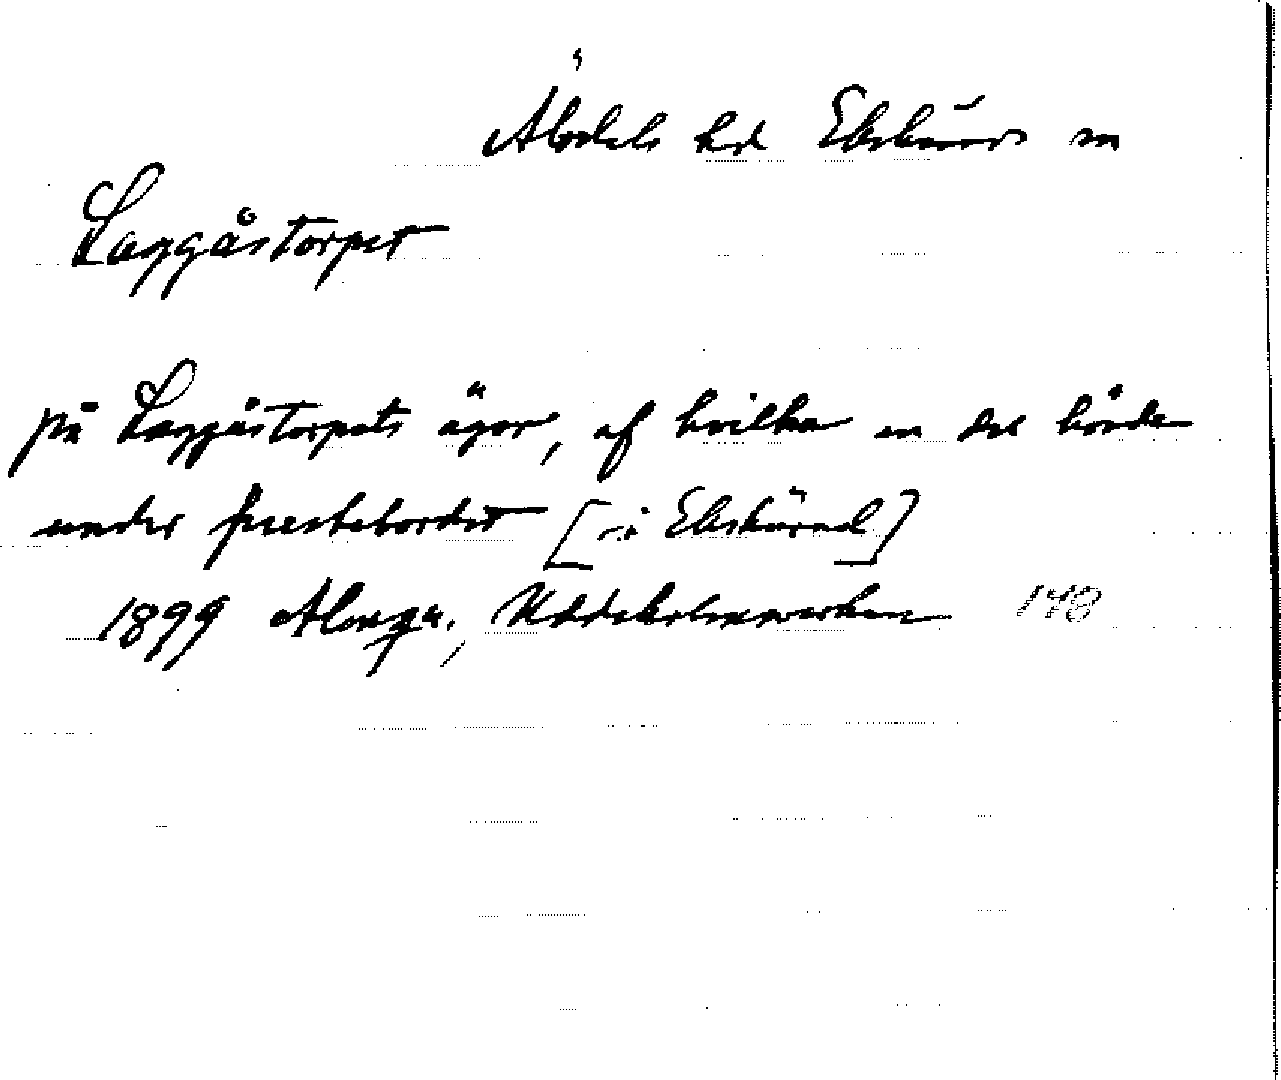 Älvdals hd Ekshärads sn
Laggåstorpet
på Laggåstorpets ägor, af hvilka en del hörde
under prestebordet [i Ekshärad]
1899 Almqu., Uddeholmsverken 148